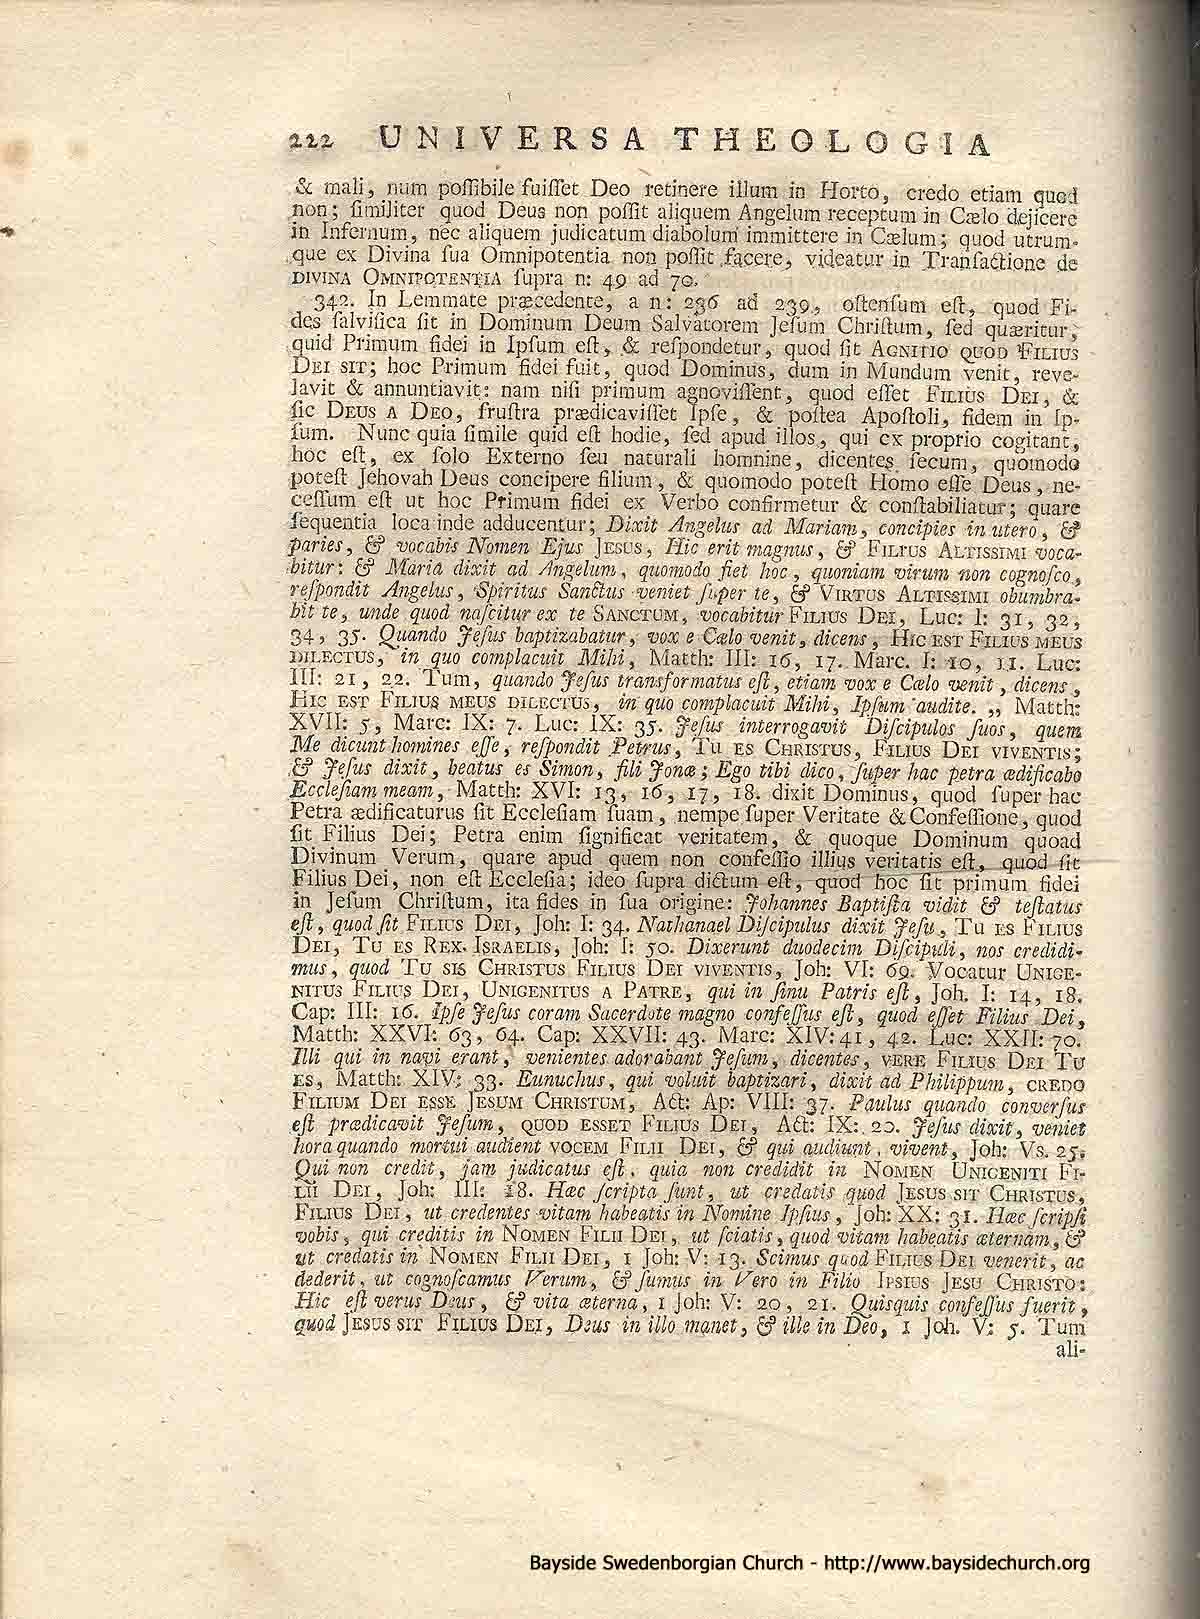 222 UNIVERSA THEOLOGIA
& mali, num poſſibile fuiſſet Deo retinere illum in Horto, credo etiam quod
non; ſimiliter quod Deus non poſſit aliquem Angelum receptum in Cælo dejicere
in Infernum, nec aliquem judicatum diabolum immittere in Cælum; quod utrum-
que ex Divina ſua Omnipotentia non poſſit facere, videatur in Tranſactione de
DIVINA OMNIPOTENTIA ſupra n: 49 ad 70.
342. In Lemmate præcedente, a n: 236 ad 239, oſtenſum eſt, quod Fi-
des ſalvifica ſit in Dominum Deum Salvatorem Jeſum Chriſtum, ſed quæritur,
quid Primum fidei in Ipſum eſt, & reſpondetur, quod ſit AGNITIO QUOD FILIUS
DEI SIT; hoc Primum fidei fuit, quod Dominus, dum in Mundum venit, reve-
lavit & annuntiavit: nam niſi primum agnoviſſent, quod eſſet FILIUS DEI, &
ſic DEUS A DEO, fruſtra prædicaviſſet Ipſe, & poſtea Apoſtoli, fidem in Ip-
ſum. Nunc quia ſimile quid eſt hodie, ſed apud illos, qui ex proprio cogitant,
hoc eſt, ex ſolo Externo ſeu naturali homnine, dicentes ſecum, quomodo
poteſt Jehovah Deus concipere filium, & quomodo poteſt Homo eſſe Deus, ne-
ceſſum eſt ut hoc Primum fidei ex Verbo confirmetur & conſtabiliatur; quare
ſequentia loca inde adducentur; Dixit Angelus ad Mariam, concipies in utero, &
paries, & vocabis Nomen Ejus JESUS, Hic erit magnus, & FILIUS ALTISSIMI voca-
bitur: & Maria dixit ad Angelum, quomodo fiet hoc, quoniam virum non cognoſco,
reſpondit Angelus, Spiritus Sanctus veniet ſuper te, & VIRTUS ALTISSIMI obumbra-
bit te, unde quod naſcitur ex te SANCTUM, vocabitur FILIUS DEI, Luc: I: 31, 32,
34, 35. Quando Jeſus baptizabatur, vox e Cælo venit, dicens, HIC EST FILIUS MEUS
DILECTUS, in quo complacuit Mihi, Matth: III: 16, 17. Marc. I: 10, 11. Luc:
III: 21, 22. Tum, quando Jeſus transformatus eſt, etiam vox e Cælo venit, dicens,
HIC EST FILIUS MEUS DILECTUS, in quo complacuit Mihi, Ipſum audite. ,, Matth:
XVII: 5, Marc: IX: 7. Luc: IX: 35. Jeſus interrogavit Diſcipulos ſuos, quem
Me dicunt homines eſſe, reſpondit Petrus, TU ES CHRISTUS, FILIUS DEI VIVENTIS;
& Jeſus dixit, beatus es Simon, fili Jonæ; Ego tibi dico, ſuper hac petra ædificabo
Eccleſiam meam, Matth: XVI: 13, 16, 17, 18. dixit Dominus, quod ſuper hac
Petra ædificaturus ſit Eccleſiam ſuam, nempe ſuper Veritate & Confeſſione, quod
ſit Filius Dei; Petra enim ſignificat veritatem, & quoque Dominum quoad
Divinum Verum, quare apud quem non confeſſio illius veritatis eſt, quod ſit
Filius Dei, non eſt Eccleſia; ideo ſupra dictum eſt, quod hoc ſit primum fidei
in Jeſum Chriſtum, ita fides in ſua origine: Johannes Baptiſta vidit & teſtatus
eſt, quod ſit FILIUS DEI, Joh: I: 34. Nathanael Diſcipulus dixit Jeſu, TU ES FILIUS
DEI, TU ES REX ISRAELIS, Joh: I: 50. Dixerunt duodecim Diſcipuli, nos credidi-
mus, quod TU SIS CHRISTUS FILIUS DEI VIVENTIS, Joh: VI: 69. Vocatur UNIGE-
NITUS FILIUS DEI, UNIGENITUS A PATRE, qui in ſinu Patris eſt, Joh. I: 14, 18.
Cap: III: 16. Ipſe Jeſus coram Sacerdote magno confeſſus eſt, quod eſſet Filius Dei,
Matth: XXVI: 63, 64. Cap: XXVII: 43. Marc: XIV: 41, 42. Luc: XXII: 70.
Illi qui in navi erant, venientes adorabant Jeſum, dicentes, VERE FILIUS DEI TU
ES, Matth: XIV: 33. Eunuchus, qui voluit baptizari, dixit ad Philippum, CREDO
FILIUM DEI ESSE JESUM CHRISTUM, Act: Ap: VIII: 37. Paulus quando converſus
eſt prædicavit Jeſum, QUOD ESSET FILIUS DEI, Act: IX: 20. Jeſus dixit, veniet
hora quando mortui audient VOCEM FILII DEI, & qui audiunt, vivent, Joh: Vs. 25.
Qui non credit, jam judicatus eſt, quia non credidit in NOMEN UNIGENITI FI-
LII DEI, Joh: III: 18. Hæc ſcripta ſunt, ut credatis quod JESUS SIT CHRISTUS,
FILIUS DEI, ut credentes vitam habeatis in Nomine Ipſius, Joh: XX: 31. Hæc ſcripſi
vobis, qui creditis in NOMEN FILII DEI, ut ſciatis, quod vitam habeatis æternam, &
ut credatis in NOMEN FILII DEI, 1 Joh: V: 13. Scimus quod FILIUS DEI venerit, ac
dederit, ut cognoſcamus Verum, & ſumus in Vero in Filio IPSIUS JESU CHRISTO:
Hic eſt verus Deus, & vita æterna, 1 Joh: V: 20, 21. Quisquis confeſſus fuerit,
quod JESUS SIT FILIUS DEI, Deus in illo manet, & ille in Deo, 1 Joh. V: 5. Tum
ali-
Bayside Swedenborgian Church - http://www.baysidechurch.org